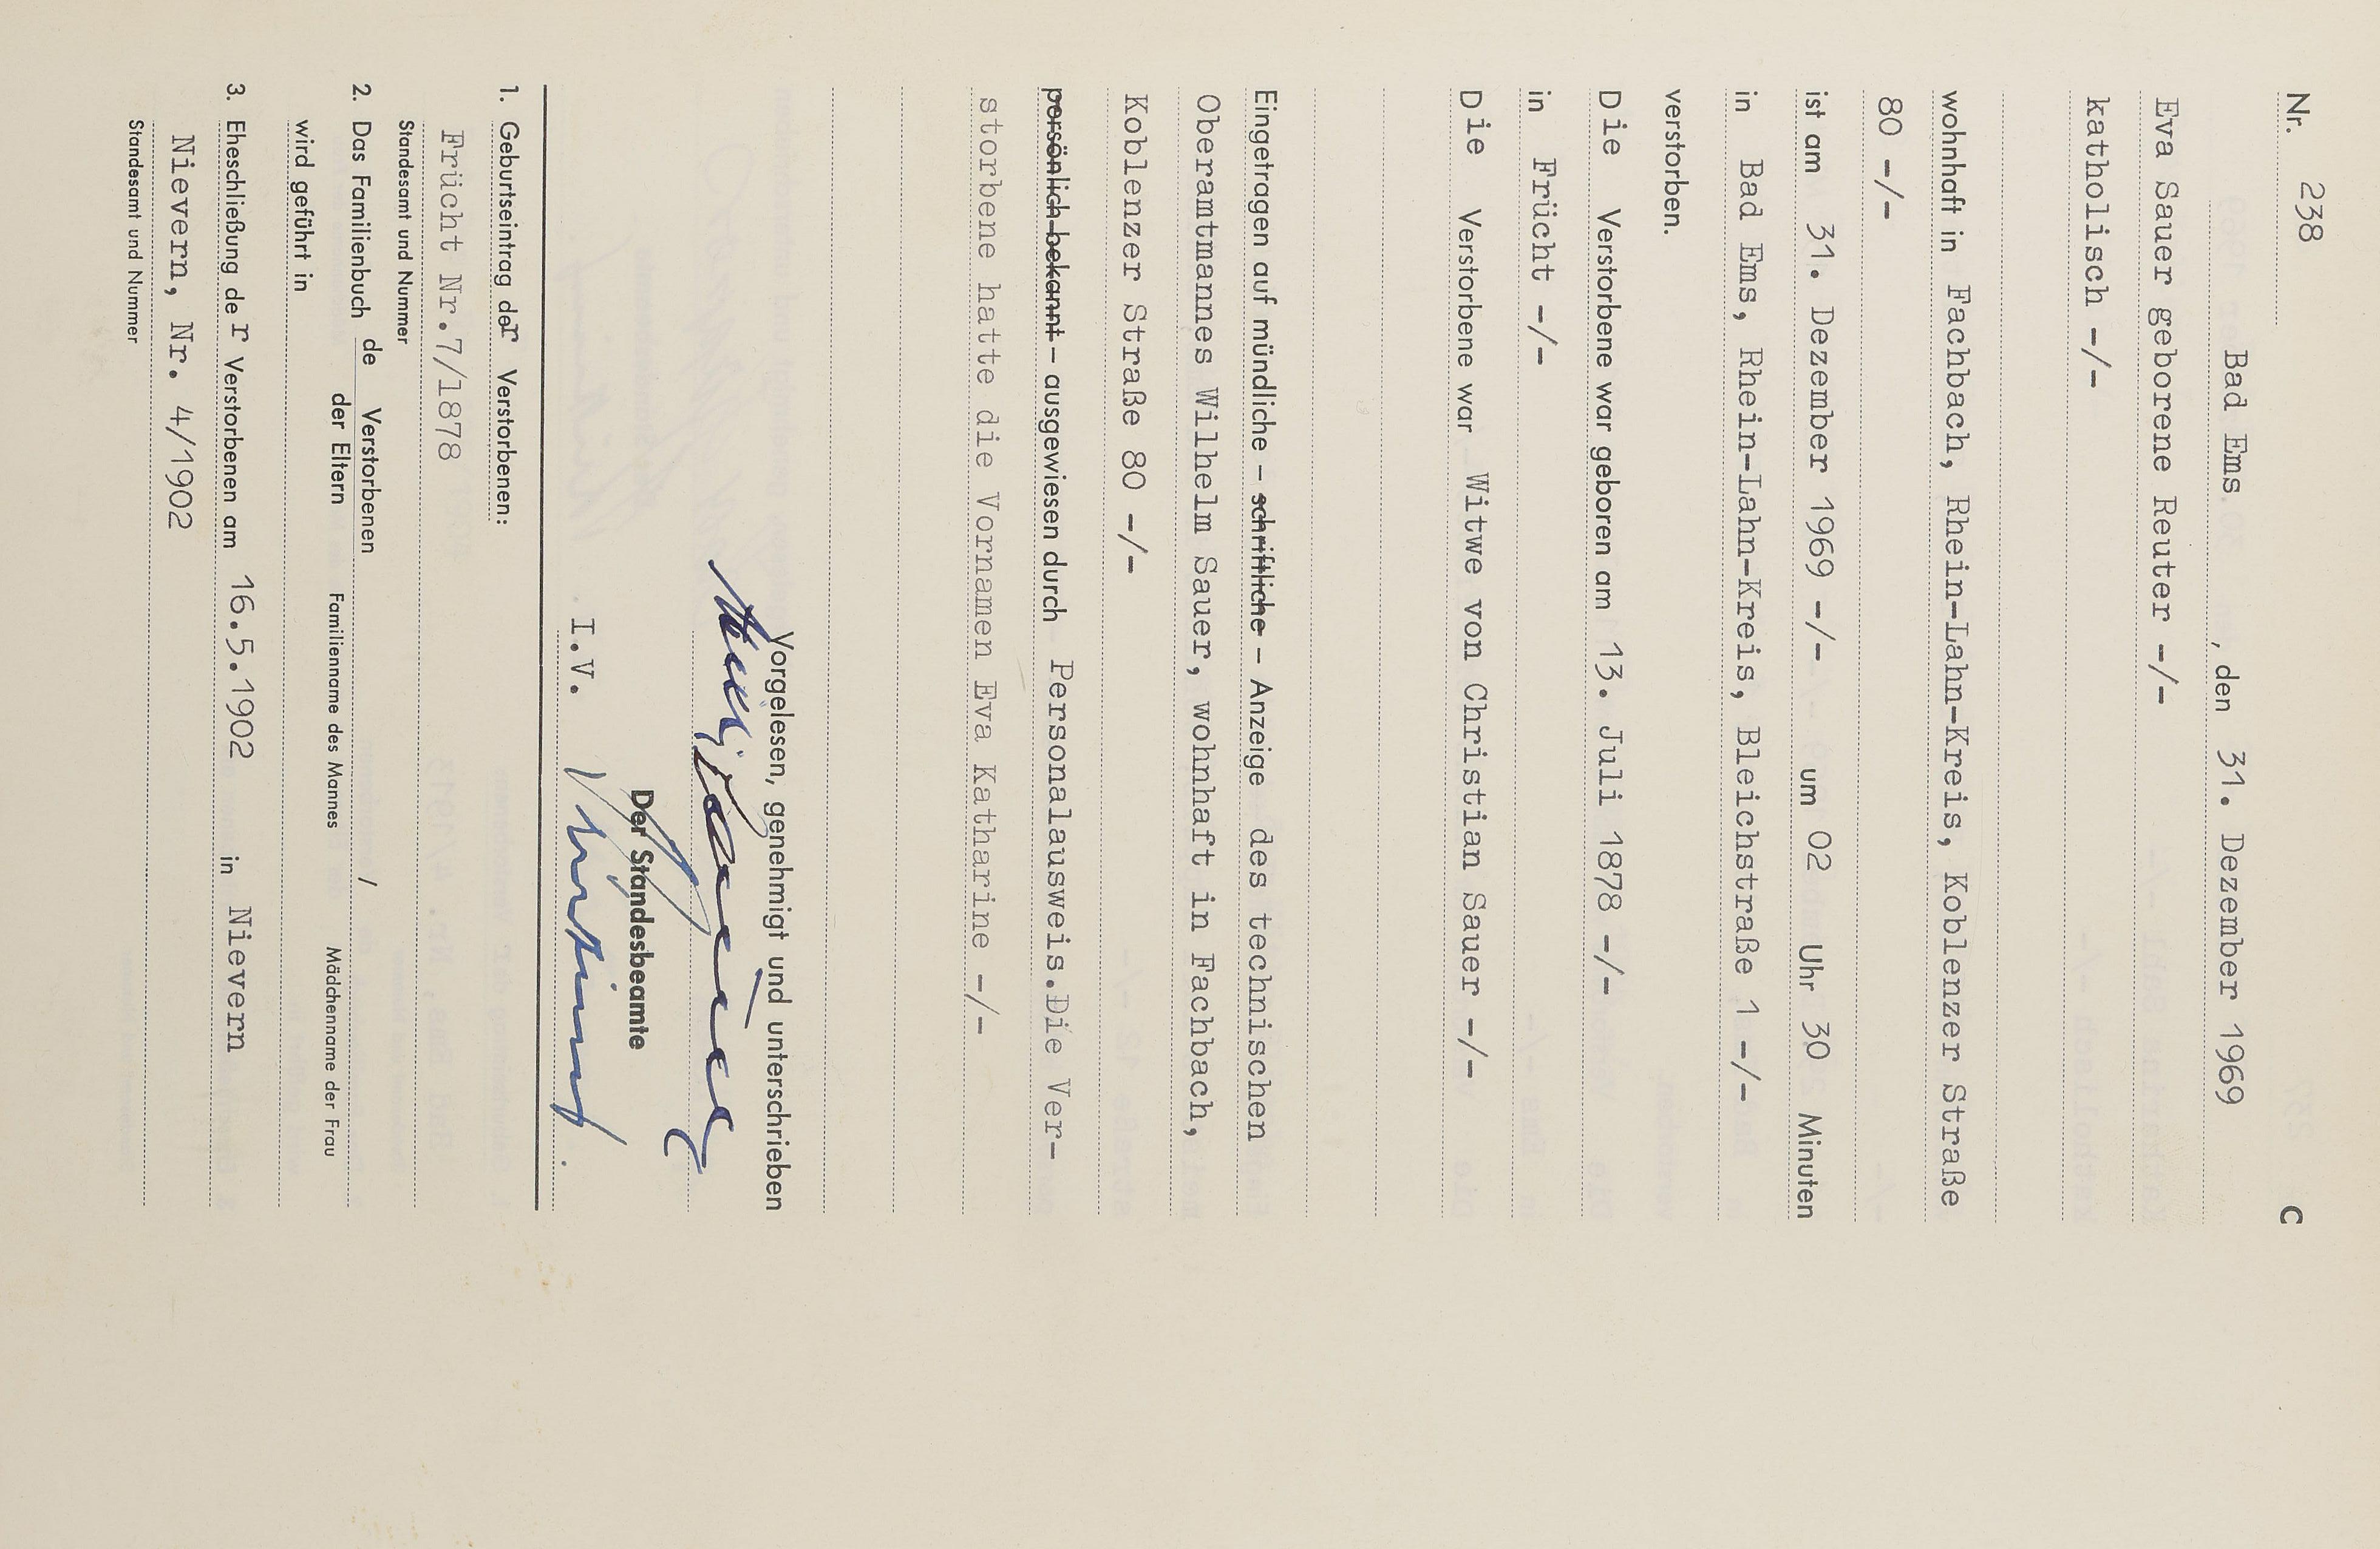 Nr. 238 C
Bad Ems, den 31. Dezember 1969
Eva Sauer geborene Reuter -/-
katholisch -/-
wohnhaft in Fachbach, Rhein-Lahn-Kreis, Koblenzer Straße
80 -/-
ist am 31. Dezember 1969 -/- um 02 Uhr 30 Minuten
in Bad Ems, Rhein-Lahn-Kreis, Bleichstraße 1 -/-
verstorben.
Die Verstorbene war geboren am 13. Juli 1878 -/-
in Frücht -/-
Die Verstorbene war Witwe von Christian Sauer -/-
Eingetragen auf mündliche - schriftliche - Anzeige des technischen
Oberamtmannes Wilhelm Sauer, wohnhaft in Fachbach,
Koblenzer Straße 80 -/-
persönlich bekannt - ausgewiesen durch Personalausweis.Die Ver-
storbene hatte die Vornamen Eva Katharine -/-
Vorgelesen, genehmigt und unterschrieben
Der Standesbeamte
I.V.
1. Geburtseintrag der Verstorbenen:
Frücht Nr.7/1878
Standesamt und Nummer
2. Das Familienbuch de Verstorbenen /
der Eltern Familienname des Mannes Mädchenname der Frau
wird geführt in
3. Eheschließung der Verstorbenen am 16.5.1902 in Nievern
Nievern, Nr. 4/1902
Standesamt und Nummer